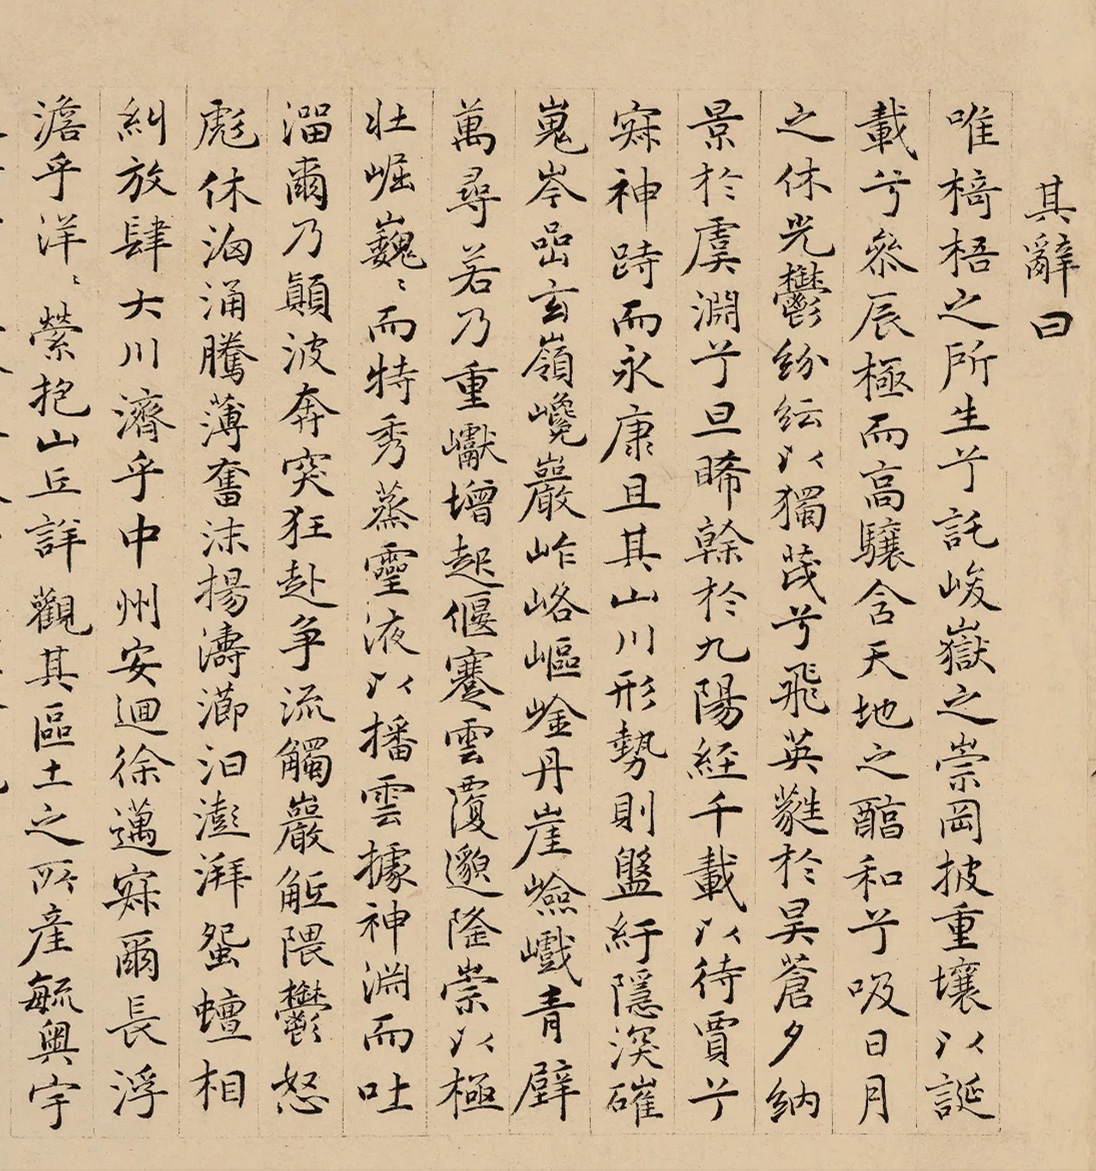 其辭曰
唯椅梧之所生兮託峻嶽之崇岡披重壤以誕
載兮叅辰極而高驤含天地之醕和兮吸日月
之休光鬱紛紜以獨茂兮飛英蕤於昊蒼夕納
景於虞淵兮旦晞幹於九陽經千載以待賈兮
寂神跱而永康且其山川形勢則盤紆隱深確
嵬岑嵒玄嶺巉巖岞峈嶇崟丹崖嶮巇青壁
萬尋若乃重巘增起偃蹇雲覆邈隆崇以極
壯崛巍〻而特秀蒸靈液以播雲據神淵而吐
溜爾乃顛波奔突狂赴争流觸巖觝隈鬱怒
彪休洶涌騰薄奮沫揚濤瀄汩澎湃𧊔蟺相
糾放肆大川濟乎中州安迴徐邁寂爾長浮
澹乎洋〻縈抱山丘詳觀其區土之所產毓奧宇